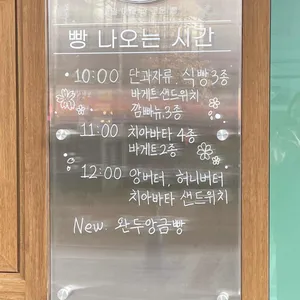 빵 나오는 시간
10:00 단과자류, 식빵3종
바게트샌드위치
깜빠뉴.3종
11:00 치아바타 4종
바게트2종
12:00 앙버터, 허니버터
치아바타 샌드위치
New. 완두앙금빵